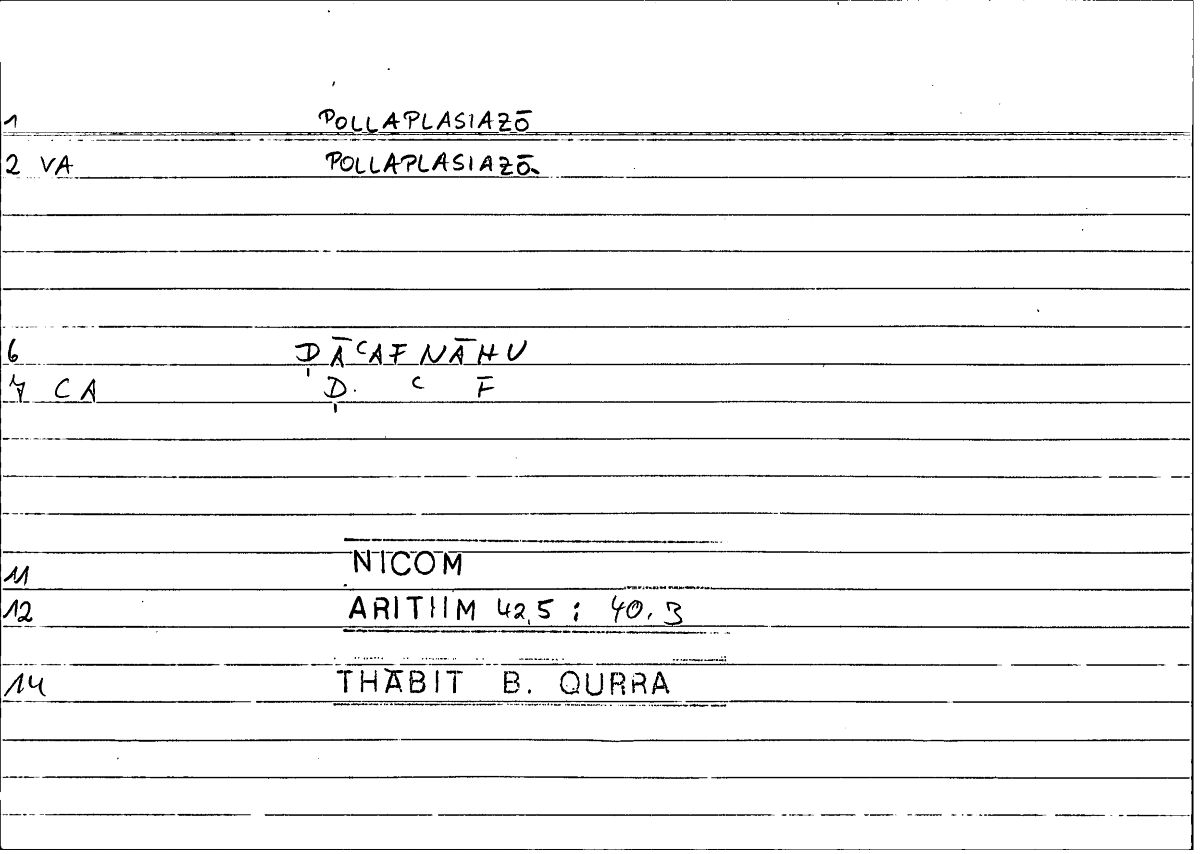 1 POLLAPLASIAZŌ
2 VA POLLAPLASIAZŌ
6 ḌĀʿAF NĀHU
7 CA Ḍ ʿ F
11 NICOM
12 ARITHM 42,5 ; 40.3
14 THĀBIT B. QURRA